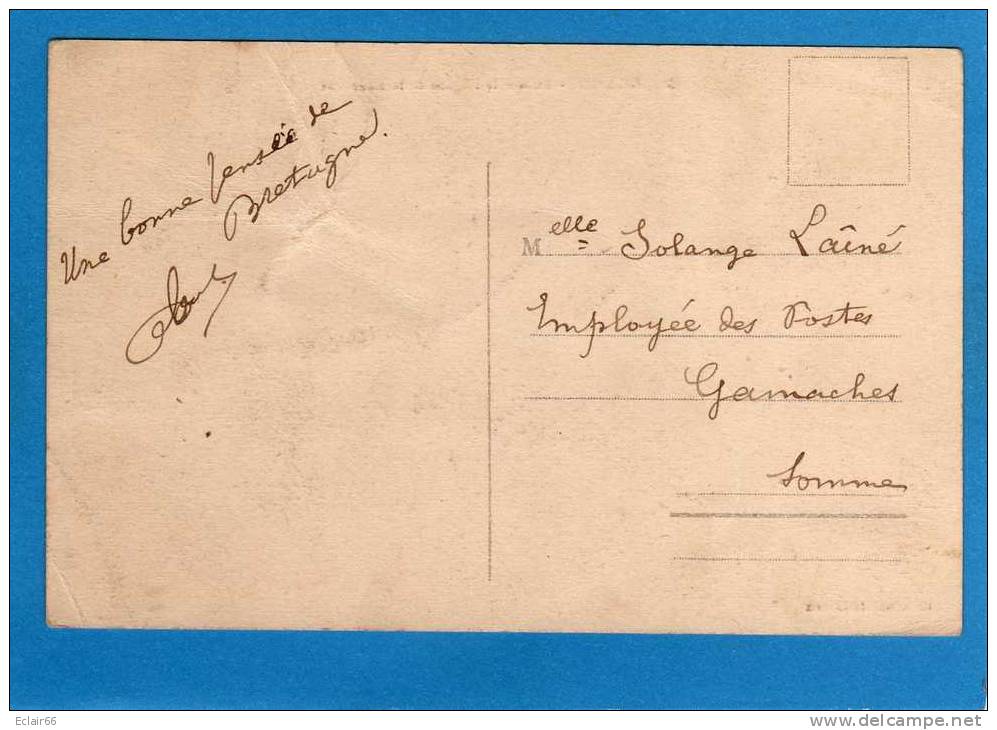 Une bonne pensée de
Bretagne.
Melle Solange Laîné
Employée des Postes
Gamaches
Somme
Eclair66
www.delcampe.net